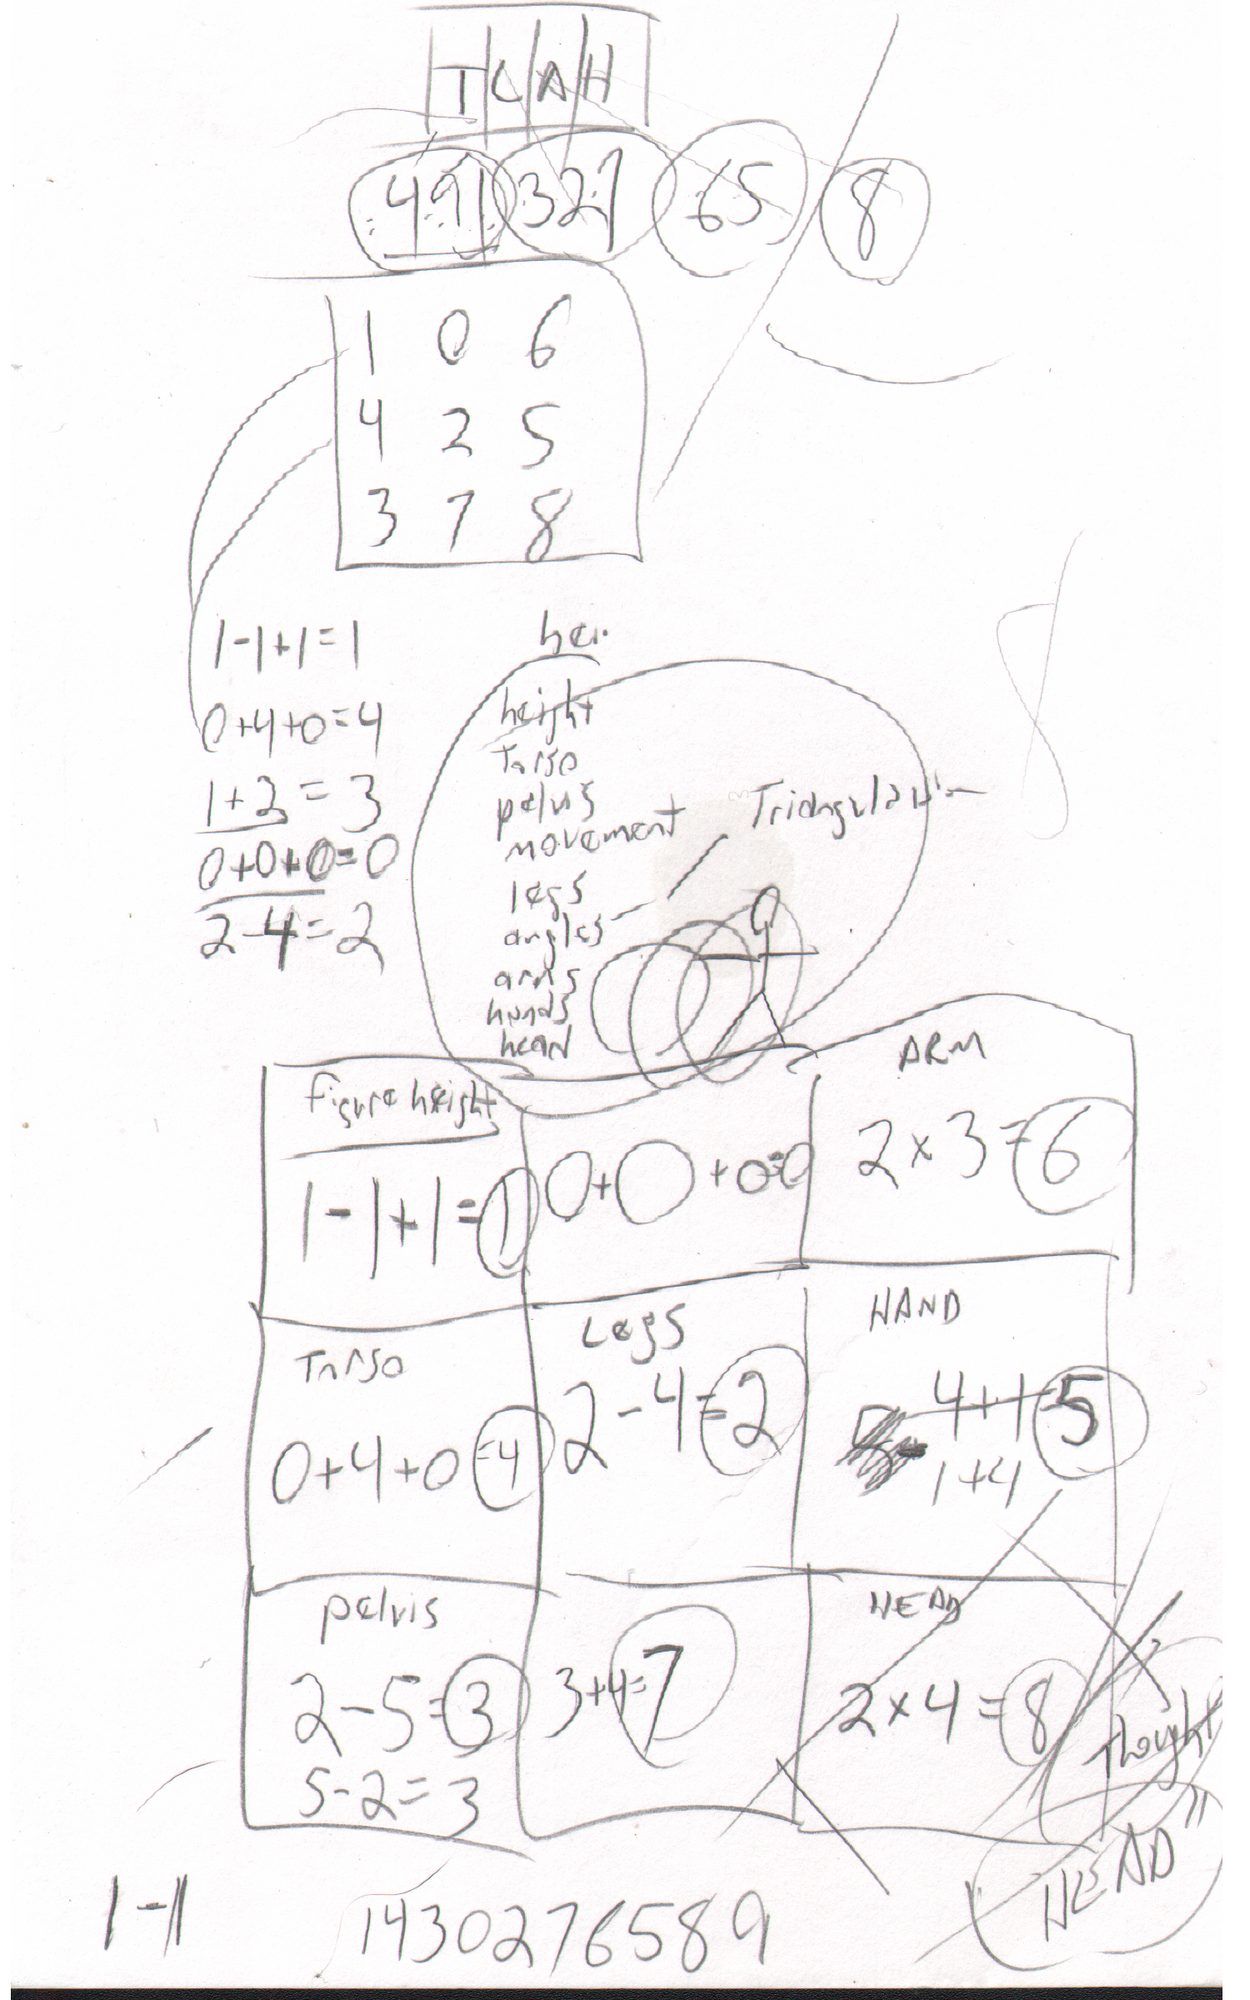 T L A H
491 321 65 8
1 0 6
4 2 5
3 7 8
1-1+1=1
0+4+0=4
1+2=3
0+0+0=0
2-4=2
hei
height
Torso
pelvis
movement
Triangulation
legs
angles
arms
hands
head
figure height
1-1+1=1
0+0+0=0
ARM
2x3=6
Torso
0+4+0=4
Legs
2-4=2
HAND
4+1 5
1+4
pelvis
2-5=3
5-2=3
3+4=7
HEAD
2x4=8
Thought
"HEAD"
1-11
1430276589